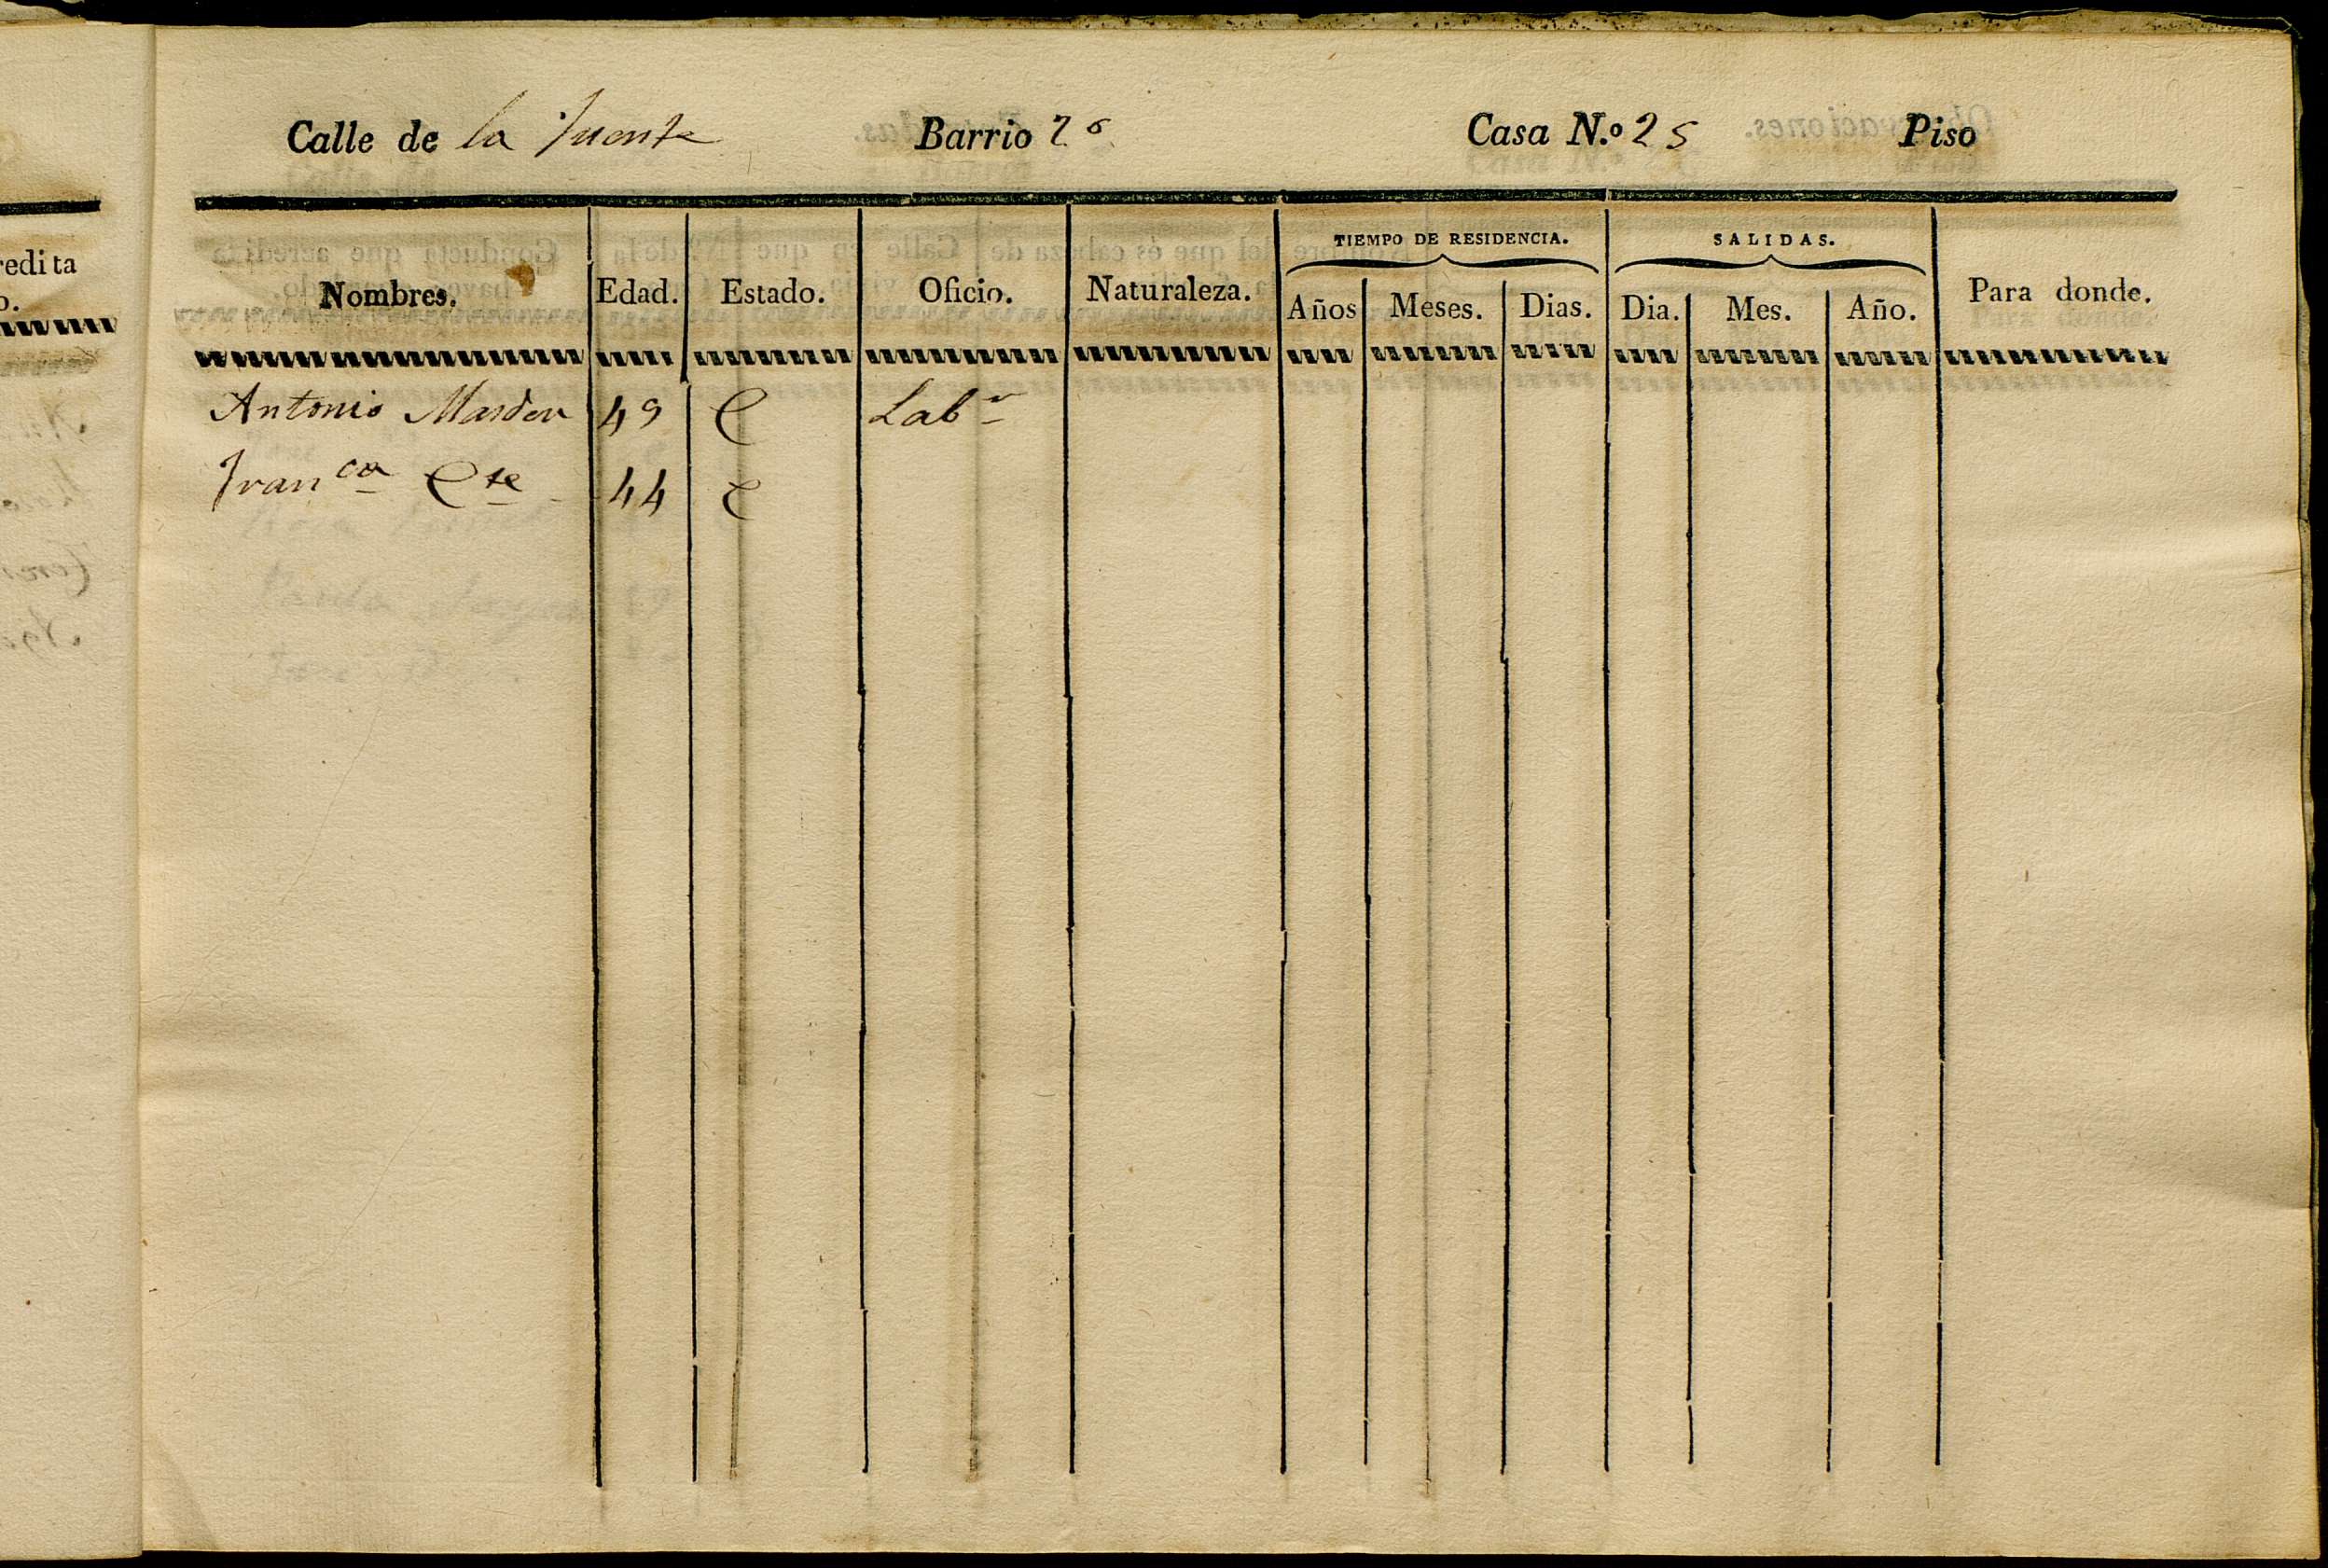 Calle de la Fuente Barrio 2º Casa N.º 25 Piso
TIEMPO DE RESIDENCIA. SALIDAS.
Nombres. Edad. Estado. Oficio. Naturaleza. Años Meses. Dias. Dia. Mes. Año. Para donde.
Antonio 49 C Labr
Franca Cte 44 C
redita
o.